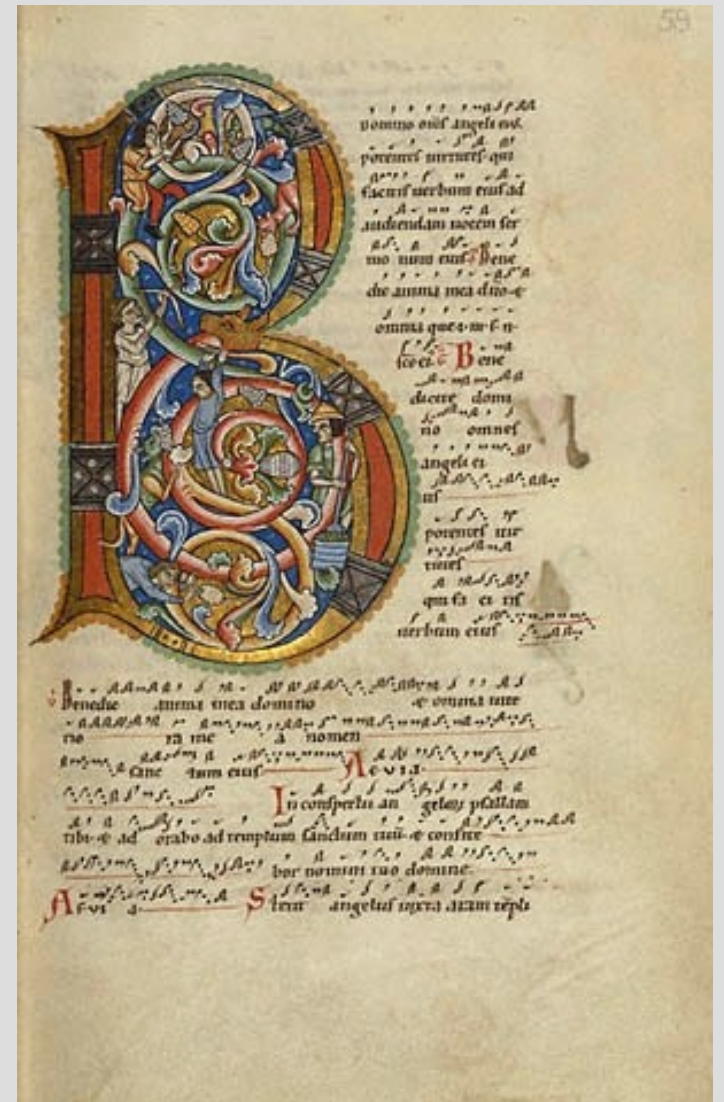 59
B
domino om̄s angeli eius.
potentes uirtutes. qui
facitis uerbum eius ad
audiendam uocem ser
mo num eius. Bene
dic anima mea d̄no. &
omnia que
Bene
dicite domi
no omnes
angeli ei
us
potentes uir
tutes
qui fa ci tis
uerbum eius
Benedic anima mea domino & omnia inte
rio ra me a nomen
sanc tum eius A E V I A.
In conspectu an gelorum psallam
tibi. & ad orabo ad templum sanctum tuū. & confite
bor nomini tuo domine.
A E V I A. Stetit angelus iuxta aram templi